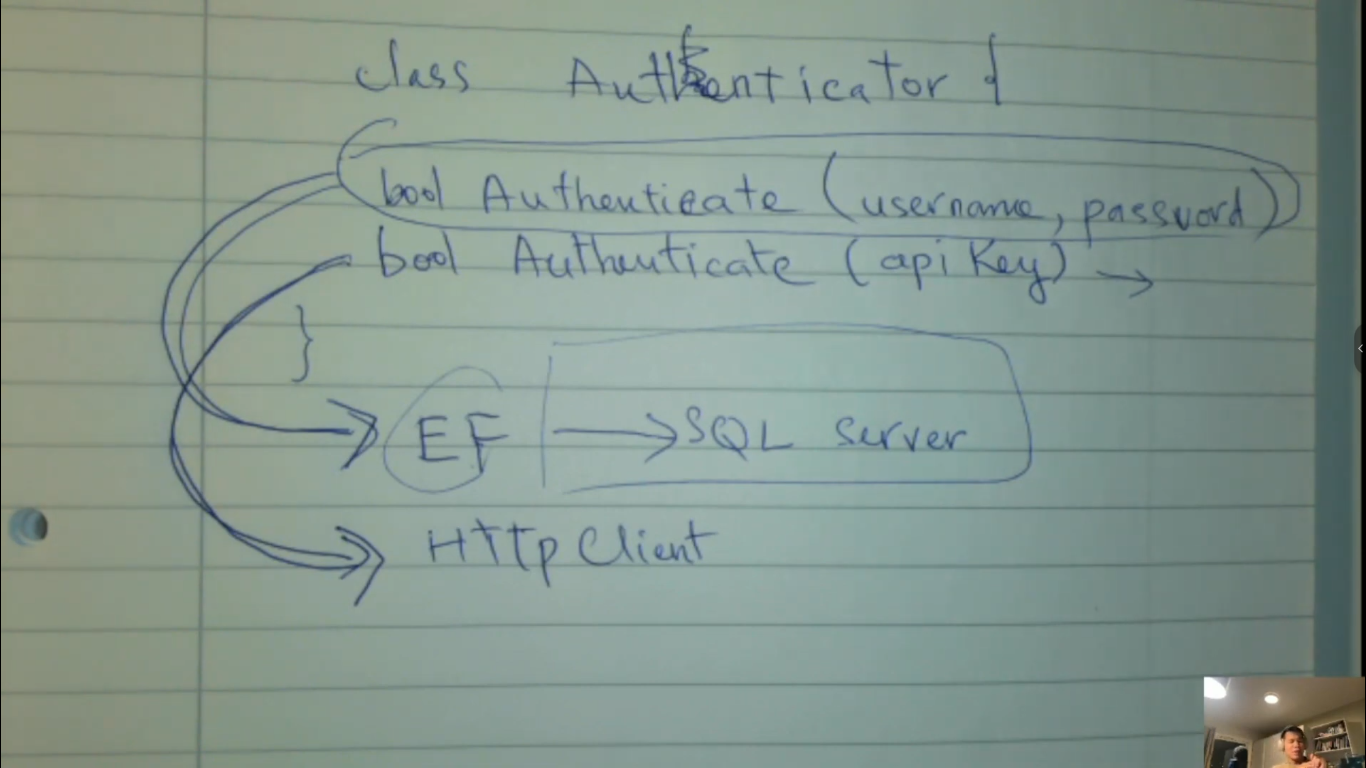 class Authenticator {
bool Authenticate (username, password)
bool Authenticate (api Key) →
}
EF → SQL server
Http Client